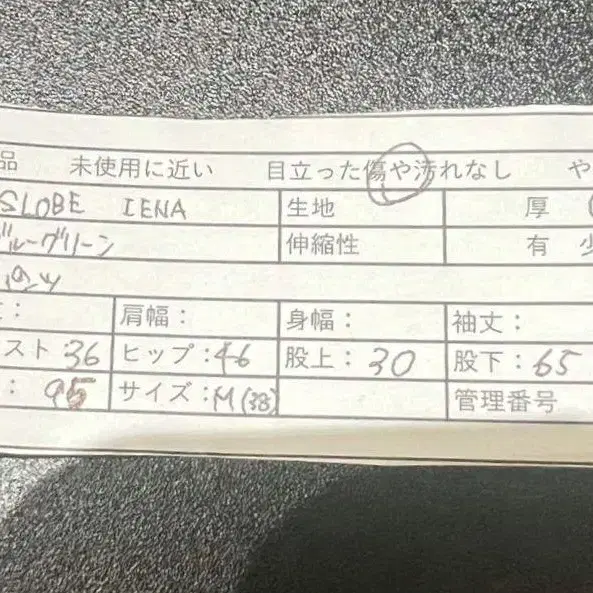 品 未使用に近い 目立った傷や汚れなし や
SLOBE IENA 生地 厚
ブルーグリーン 伸縮性 有 少
パンツ
: 肩幅: 身幅: 袖丈:
スト 36 ヒップ:46 股上:30 股下:65
: 95 サイズ:M(38) 管理番号